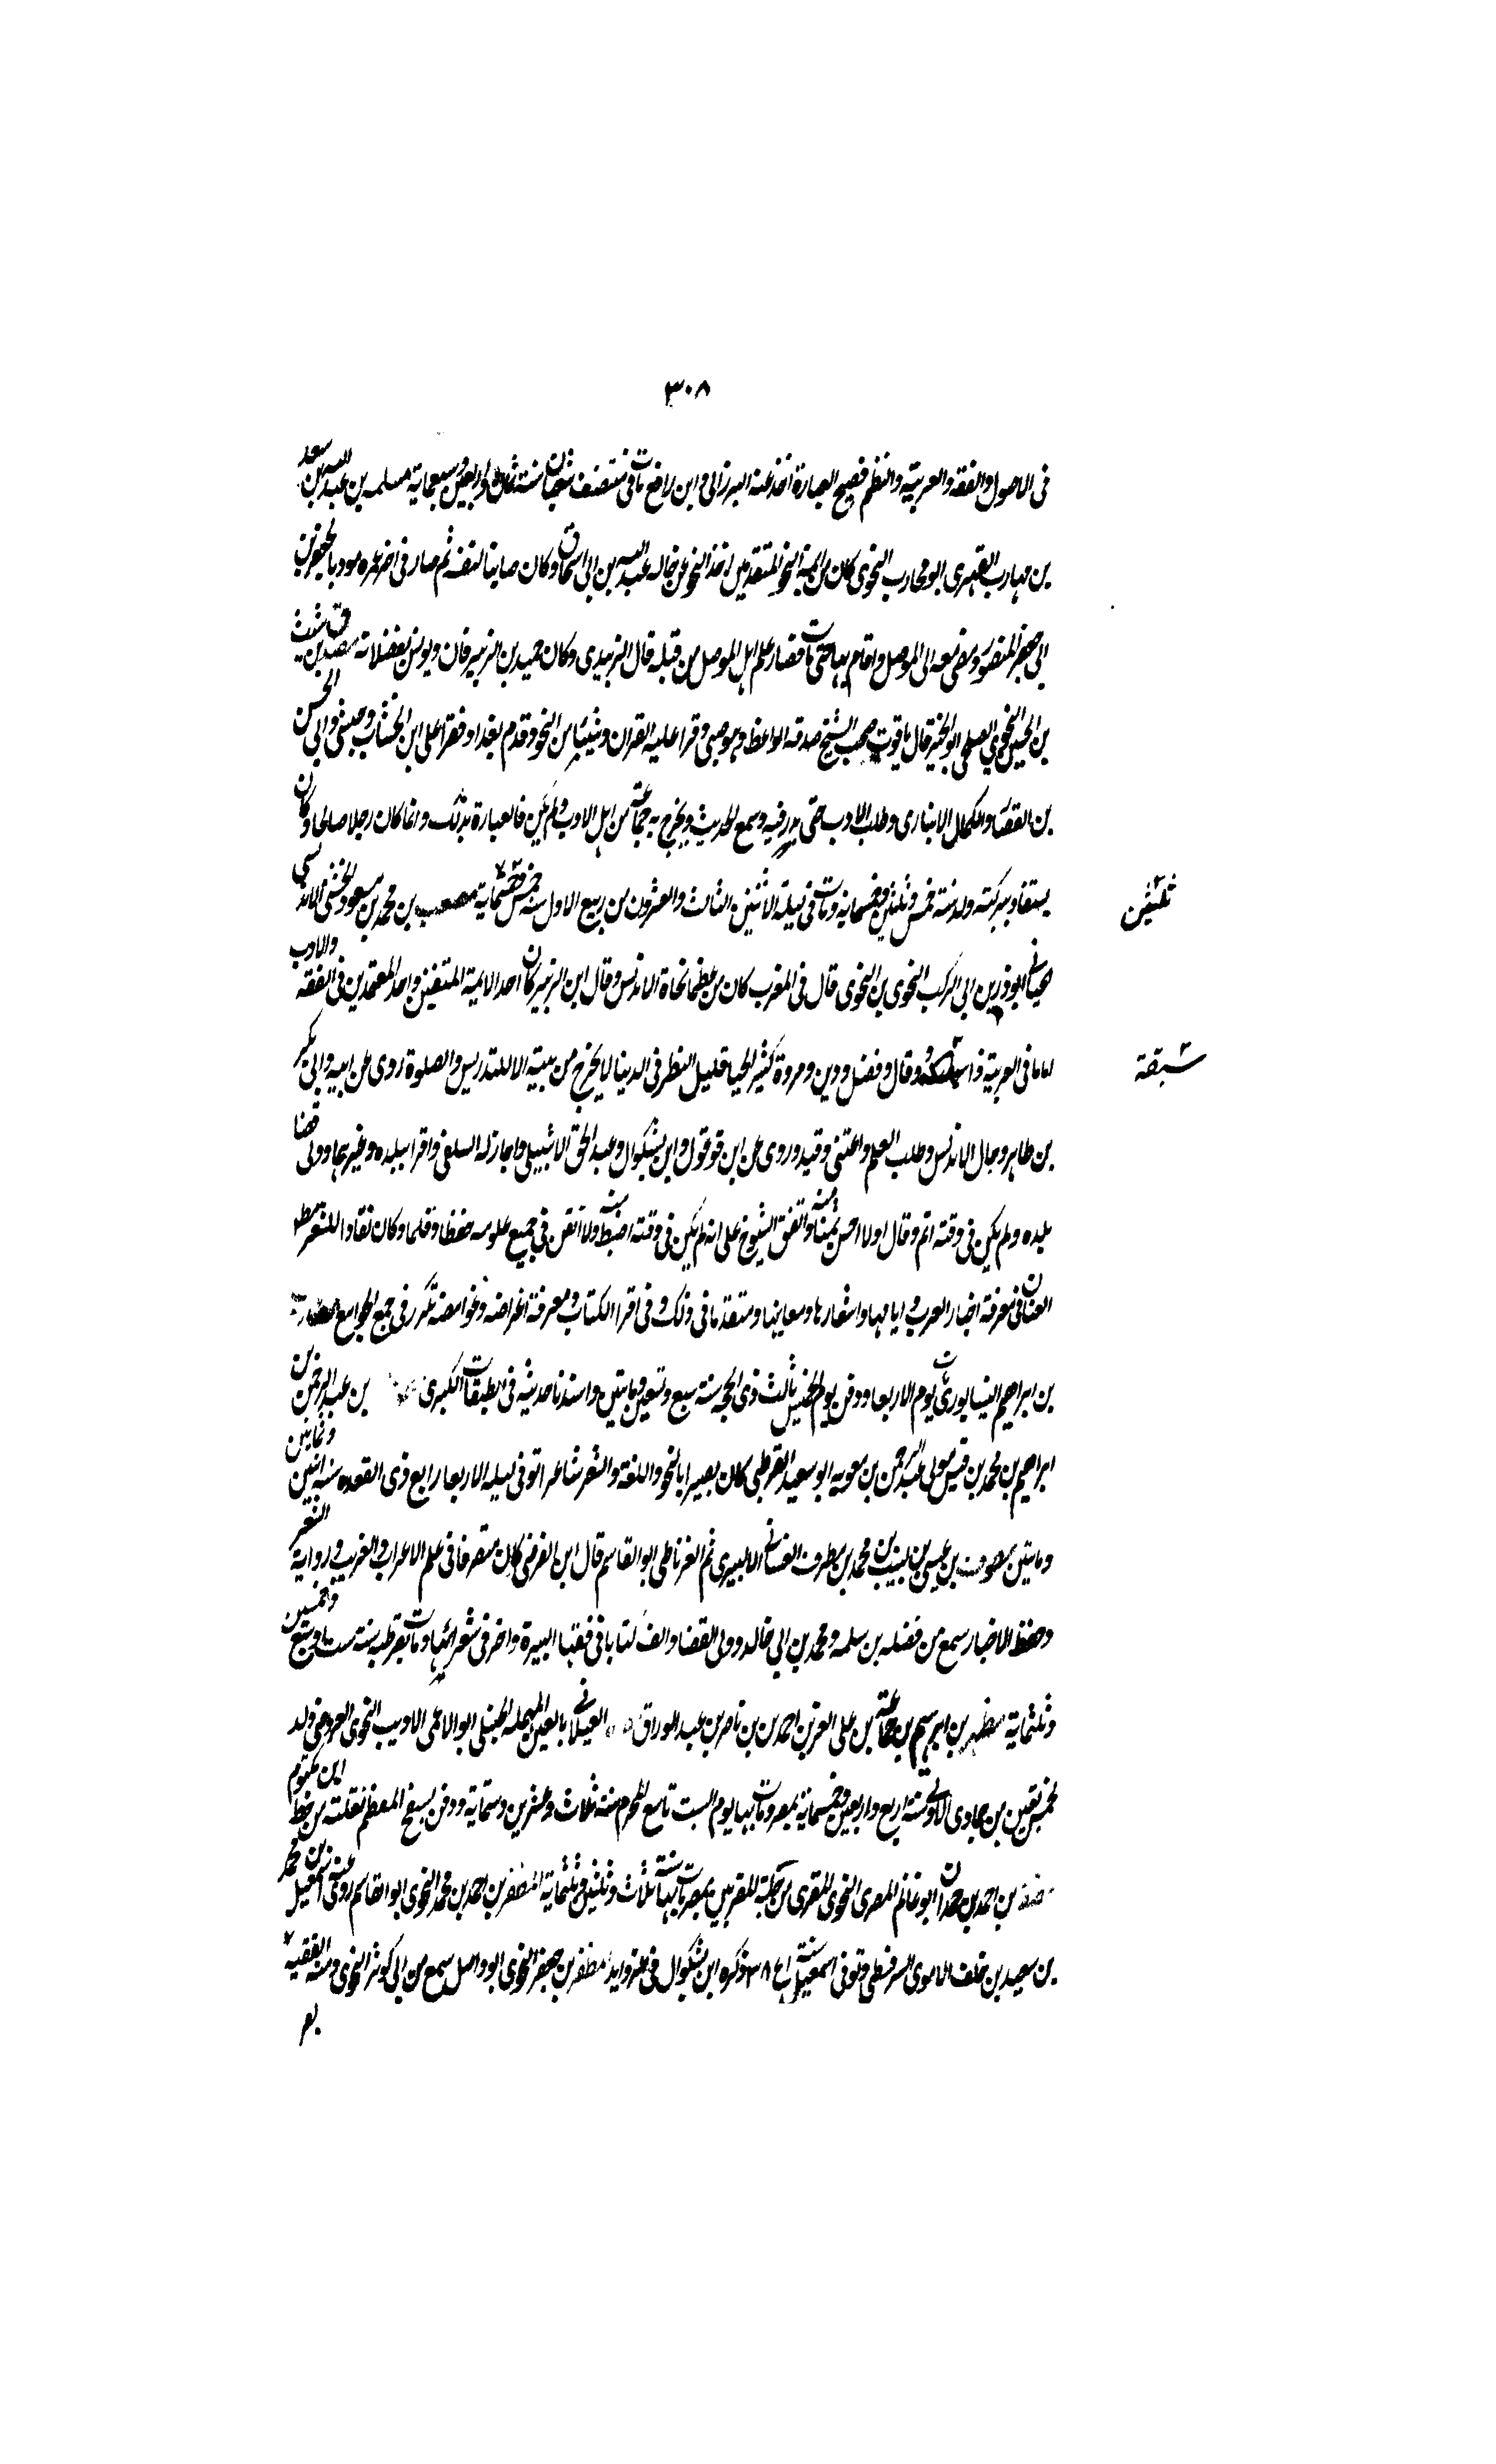 ٣٠٨
فى الاصول والفقه والعربية والنظم فصيح العبارة اخذ عنه البرزالى وابن رافع مات فى منتصف شعبان سنة ثمان واربعين وسبعماية مسلمه بن عبد الله بن سعد
بن محارب الفهرى ابو محارب النحوى كان من ايمة النحو المتقدمين اخذ النحو عن خاله عبد الله بن ابى اسحاق وكان صاينا لنفسه ثم صار فى اخر عمره مودبا لجعفر بن
ابى جعفر المنصور ومضى معه الى الموصل واقام بها حتى مات فصار علم اهل الموصل من قبله قال الزبيدى وكان حميد بن الزبيرقان ويونس يفضلانه مصدق بن شبيب
بن الحسين النحوي الصلحى ابو الخير قال ياقوت صحب الشيخ صدقه الواعظ وهو صبى وقرا عليه القران وشيئا من النحو وقدم بغداد فقرا على ابن الخشاب وحبشى وابى الحسن
بن القصار والكمال الانبارى وطلب الادب حتى برع فيه وسمع الحديث وتخرج به جماعة من اهل الادب ولم يكن فى العبارة بذلك وانما كان رجلا صالحا وكان
يستفاد ببركته ولد سنة خمس وثلثين وخمسماية ومات فى ليلة الاثنين الثالث والعشرون من ربيع الاول سنة خمس وستماية مصعب بن محمد بن مسعود الخشنى الاندلسى
ثلثين
الجيانى ابو ذر بن ابى الركب النحوى بن النحوى قال فى المغرب كان من عظما نحاة الاندلس وقال ابن الزبير كان احد الايمة المتقنين واحد المعتمدين فى الفقه والادب
اماما فى العربية وقال وفضل ودين ومروة كثير الحيا قليل النظر فى الدنيا لا يخرج من بيته الا للتدريس والصلوة روى عن ابيه وابى بكر
شبقة
بن طاهر وجال الاندلس وطلب العلم واعتنى وقيد وروى عن ابن قرقول وابن بشكوال وعبد الحق الاشبيلى واجاز له السلفى واقرا ببلده وغيرها وولى قضا
بلده ولم يكن فى وقته اتم وقارا ولا احسن سمتا منه واتفق الشيوخ على انه لم يكن فى وقته اضبط منه ولا اتقن فى جميع علومه حفظا وقلما وكان نقادا للشعر مطلق
العنان فى معرفة اخبار العرب وايامها واشعارها ومعانيها ومتقدما فى ذلك و فى اقرا الكتاب ومعرفة اغراضه وغوامضه تكرر فى جمع الجوامع
بن ابراهيم النيسابورى مات يوم الاربعا ودفن يوم الخميس ثالث ذى الحجه سنة سبع وتسعين ومايتين واسندنا حديثه فى الطبقات الكبرى بن عبد الرحمن بن
ابراهيم بن محمد بن قيس مولى عبد الرحمن بن معويه ابو سعيد القرطبى كان بصيرا بالنحو واللغة والشعر شاعرا توفى ليله الاربعا رابع ذى القعده سنة اثنين وثمانين
ومايتين بن عيسى بن لبيب بن محمد بن مطرف الغسانى الالبيرى ثم الغرناطى ابو القاسم قال ابن الفرضى كان متصرفا فى علم الاعراب والغريب ورواية الشعر
وحفظ الاخبار سمع من فضله بن سلمه ومحمد بن ابى خالد وولى القضا والف كتابا فى فقها البيرة واخر فى شعرائها ومات بقرطبه سنة ست او سبع وخمسين
وثلثماية مظهر بن ابرهيم بن جماعة بن على العز بن احمد بن بن ناصر بن عبد الوراق العيلانى بالعين المهمله الحنبلى ابو الاعمى الاديب النحوى العروضى ولد
لخمس بقين من جمادى الاولى سنة اربع واربعين وخمسماية بمصر ومات بها يوم السبت تاسع المحرم سنة ثلاث وعشرين وستماية ودفن بسفح المقطم نقلته من خط ابن مكتوم
بن احمد بن حمدان ابو غانم المصرى النحوى المقرى من جلة المقريين بمصر مات بها سنة ثلاث وثلثين وثلثماية المظفر بن احمد بن محمد النحوى ابو القاسم روى عنه اسمعيل بن محمد
بن سعيد بن خلف الاموى السرقسطى وتوفى اسمعيل سنة ذكره ابن بشكوال فى زوايد مظفر بن جعفر النحوى ابو واصل سمع من ابى كوثر النحوى ومنه الفقيه